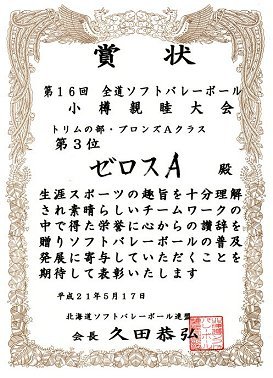 賞状
第16回 全道ソフトバレーボール
小樽親睦大会
トリムの部・ブロンズAクラス
第3位
ゼロスA 殿
生涯スポーツの趣旨を十分理解
され素晴らしいチームワークの
中で得た栄誉に心からの讃辞を
贈りソフトバレーボールの普及
発展に寄与していただくことを
期待して表彰いたします
平成21年5月17日
北海道ソフトバレーボール連盟
会長 久田恭弘